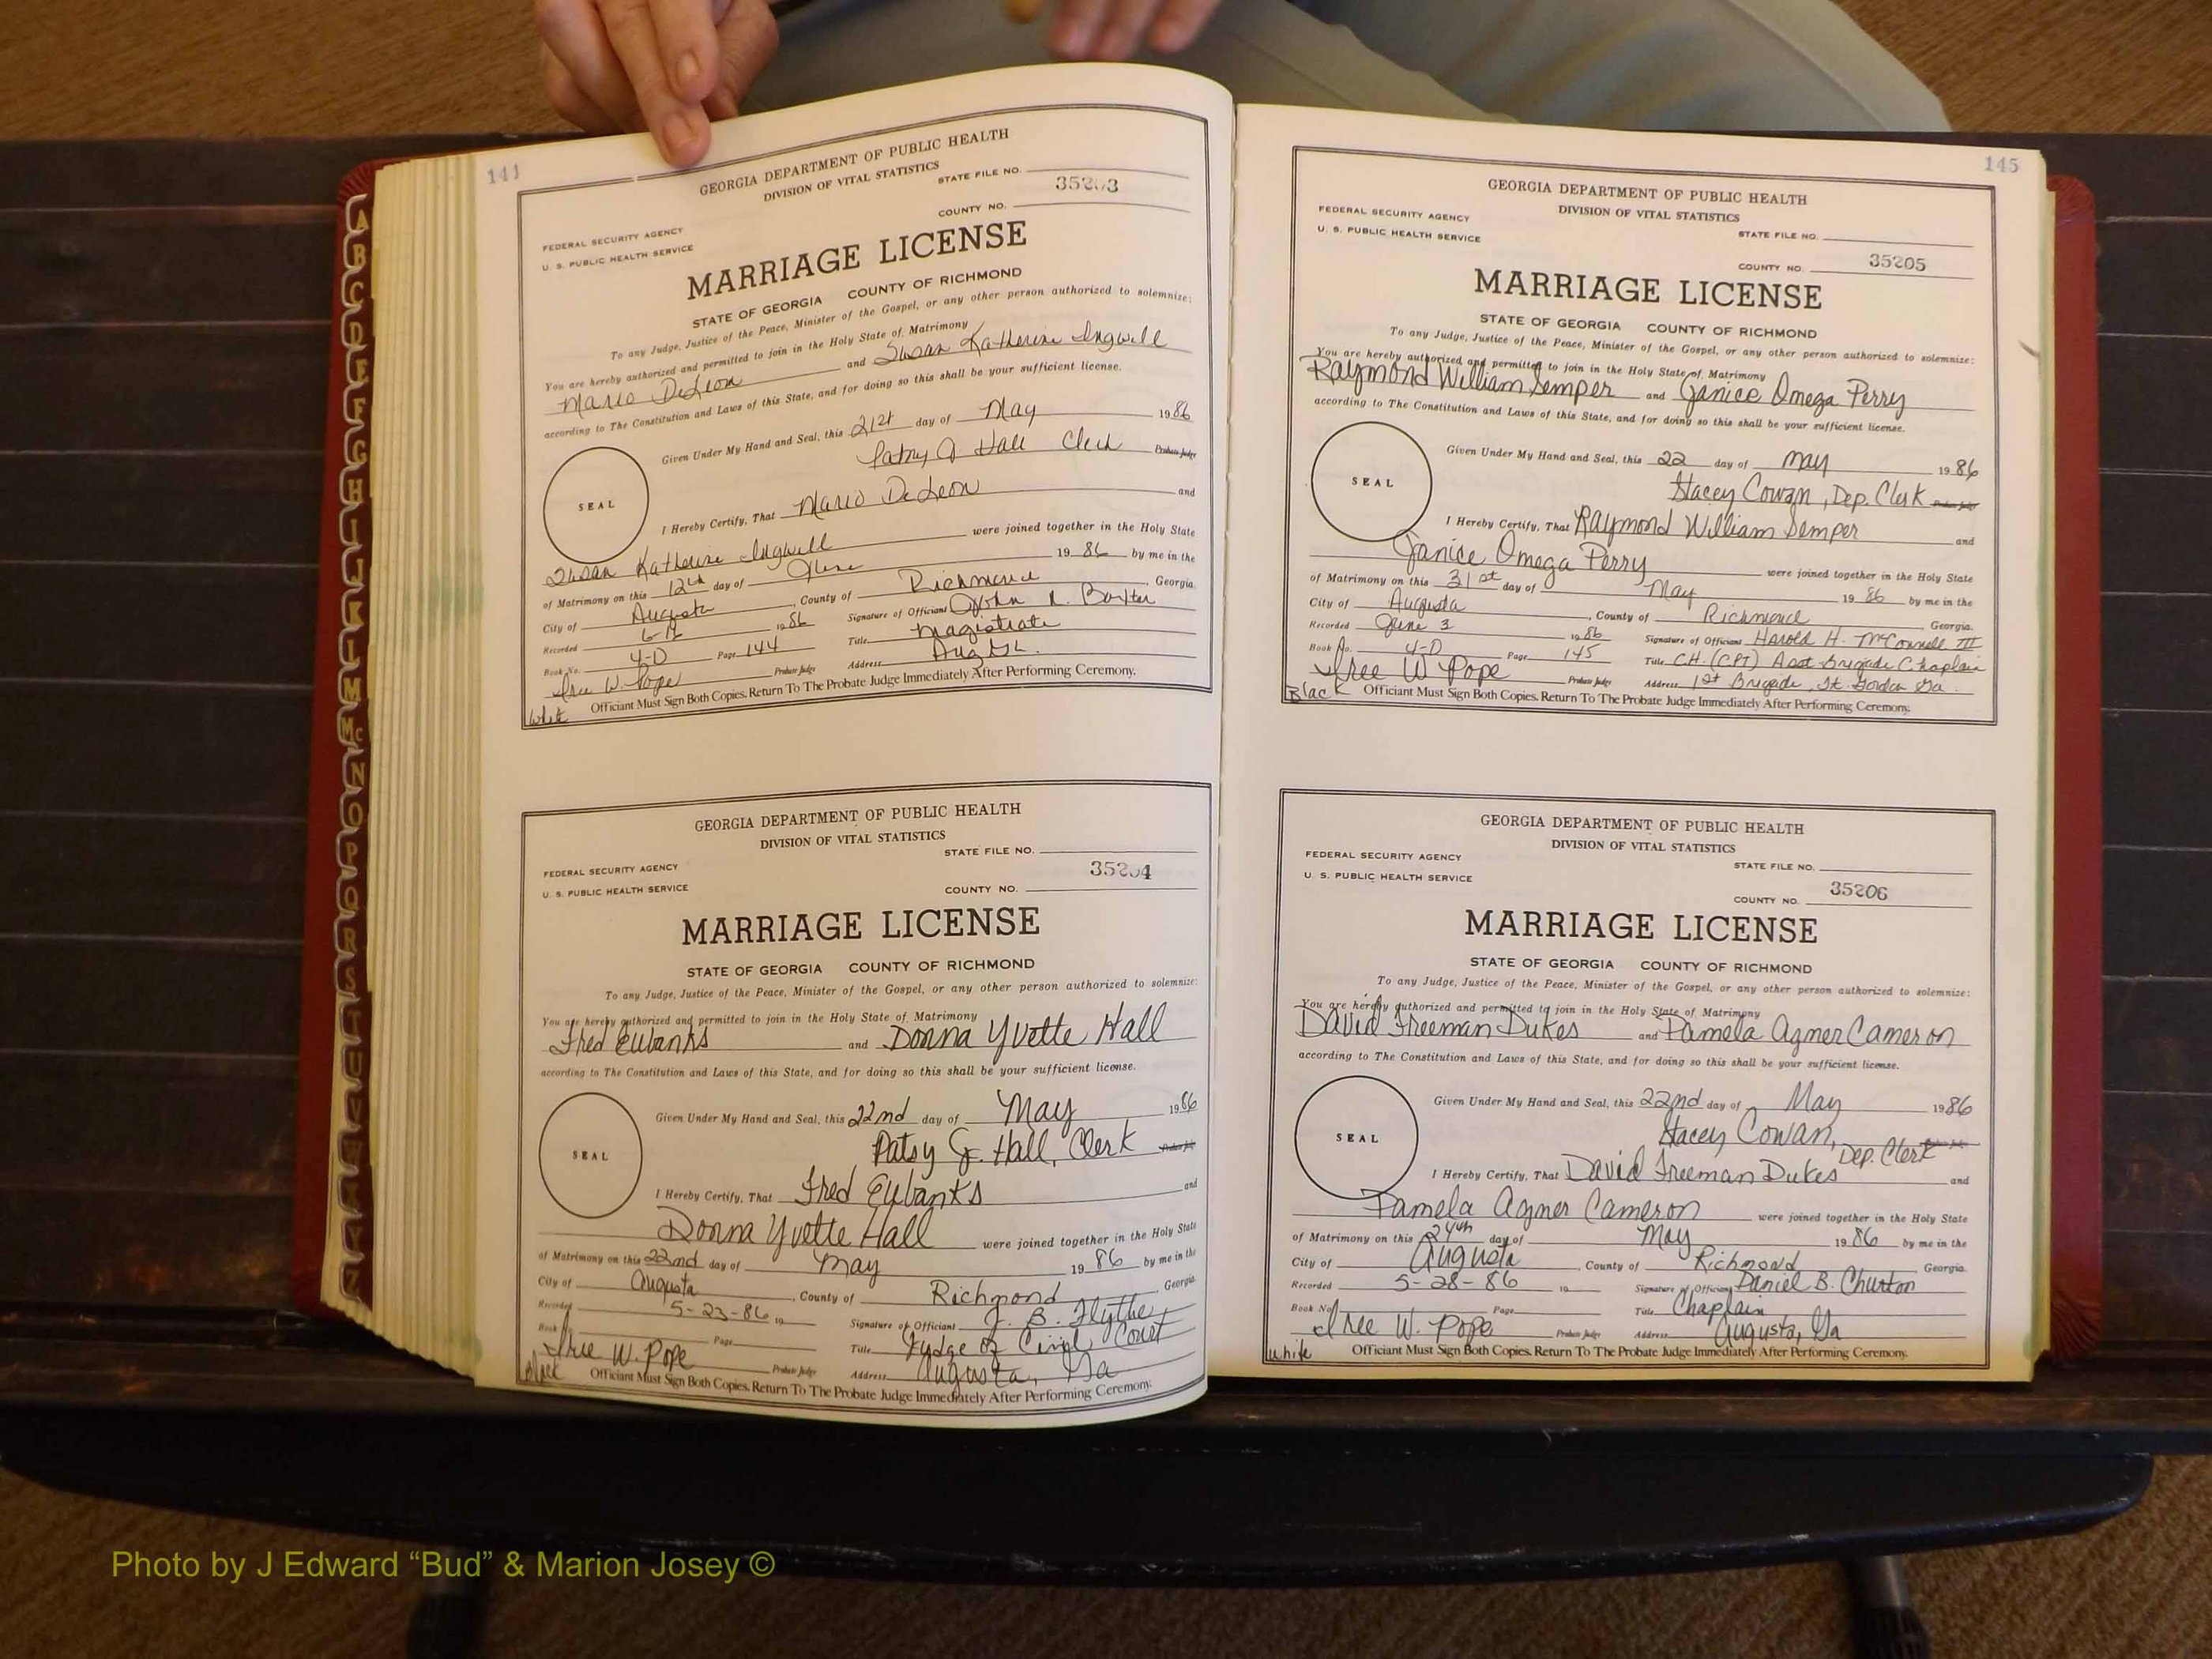 141
GEORGIA DEPARTMENT OF PUBLIC HEALTH
DIVISION OF VITAL STATISTICS
STATE FILE NO.
FEDERAL SECURITY AGENCY
U. S. PUBLIC HEALTH SERVICE
COUNTY NO. 35203
MARRIAGE LICENSE
STATE OF GEORGIA COUNTY OF RICHMOND
To any Judge, Justice of the Peace, Minister of the Gospel, or any other person authorized to solemnize:
You are hereby authorized and permitted to join in the Holy State of Matrimony
Mario DeLeon and Susan Katherine Ingwell
according to The Constitution and Laws of this State, and for doing so this shall be your sufficient license.
Given Under My Hand and Seal, this 21st day of May 1986
Patsy J Hall Clerk Probate Judge
SEAL
I Hereby Certify, That Mario DeLeon and
Susan Katherine Ingwell were joined together in the Holy State
of Matrimony on this 12th day of June 1986 by me in the
City of Augusta, County of Richmond, Georgia.
Recorded 1986 Signature of Officiant John R. Baxter
Book No. 4-D Page 144 Title Magistrate
Iree W. Pope Probate Judge Address
White Officiant Must Sign Both Copies. Return To The Probate Judge Immediately After Performing Ceremony.
GEORGIA DEPARTMENT OF PUBLIC HEALTH
DIVISION OF VITAL STATISTICS
STATE FILE NO.
FEDERAL SECURITY AGENCY
U. S. PUBLIC HEALTH SERVICE
COUNTY NO. 35204
MARRIAGE LICENSE
STATE OF GEORGIA COUNTY OF RICHMOND
To any Judge, Justice of the Peace, Minister of the Gospel, or any other person authorized to solemnize:
You are hereby authorized and permitted to join in the Holy State of Matrimony
Fred Eubanks and Donna Yvette Hall
according to The Constitution and Laws of this State, and for doing so this shall be your sufficient license.
Given Under My Hand and Seal, this 22nd day of May 1986
Patsy J. Hall, Clerk Probate Judge
SEAL
I Hereby Certify, That Fred Eubanks and
Donna Yvette Hall were joined together in the Holy State
of Matrimony on this 22nd day of May 1986 by me in the
City of Augusta, County of Richmond, Georgia.
Recorded 5-23-86 19 Signature of Officiant J. B. Flythe
Book No. Page Title Judge of Civil Court
Iree W. Pope Probate Judge Address Augusta, Ga
Black Officiant Must Sign Both Copies. Return To The Probate Judge Immediately After Performing Ceremony.
145
GEORGIA DEPARTMENT OF PUBLIC HEALTH
DIVISION OF VITAL STATISTICS
FEDERAL SECURITY AGENCY
STATE FILE NO.
U. S. PUBLIC HEALTH SERVICE
COUNTY NO. 35205
MARRIAGE LICENSE
STATE OF GEORGIA COUNTY OF RICHMOND
To any Judge, Justice of the Peace, Minister of the Gospel, or any other person authorized to solemnize:
You are hereby authorized and permitted to join in the Holy State of Matrimony
Raymond William Semper and Janice Omega Perry
according to The Constitution and Laws of this State, and for doing so this shall be your sufficient license.
Given Under My Hand and Seal, this 22 day of May 1986
Stacey Cowan, Dep. Clerk Probate Judge
SEAL
I Hereby Certify, That Raymond William Semper and
Janice Omega Perry were joined together in the Holy State
of Matrimony on this 31st day of May 1986 by me in the
City of Augusta, County of Richmond, Georgia.
Recorded June 3 1986 Signature of Officiant Harold H. McConnell III
Book No. 4-D Page 145 Title CH. (CPT) Asst Brigade Chaplain
Iree W Pope Probate Judge Address 1st Brigade, Ft. Gordon Ga.
Black Officiant Must Sign Both Copies. Return To The Probate Judge Immediately After Performing Ceremony.
GEORGIA DEPARTMENT OF PUBLIC HEALTH
DIVISION OF VITAL STATISTICS
FEDERAL SECURITY AGENCY
STATE FILE NO.
U. S. PUBLIC HEALTH SERVICE
COUNTY NO. 35206
MARRIAGE LICENSE
STATE OF GEORGIA COUNTY OF RICHMOND
To any Judge, Justice of the Peace, Minister of the Gospel, or any other person authorized to solemnize:
You are hereby authorized and permitted to join in the Holy State of Matrimony
David Freeman Dukes and Pamela Agner Cameron
according to The Constitution and Laws of this State, and for doing so this shall be your sufficient license.
Given Under My Hand and Seal, this 22nd day of May 1986
Stacey Cowan, Dep. Clerk Probate Judge
SEAL
I Hereby Certify, That David Freeman Dukes and
Pamela Agner Cameron were joined together in the Holy State
of Matrimony on this 24th day of May 1986 by me in the
City of Augusta, County of Richmond, Georgia.
Recorded 5-28-86 19 Signature of Officiant Daniel B. Churton
Book No. Page Title Chaplain
Iree W. Pope Probate Judge Address Augusta, Ga
White Officiant Must Sign Both Copies. Return To The Probate Judge Immediately After Performing Ceremony.
A
B
C
D
E
F
G
H
I
J
K
L
M
Mc
N
O
P
Q
R
S
T
U
V
Photo by J Edward “Bud” & Marion Josey ©